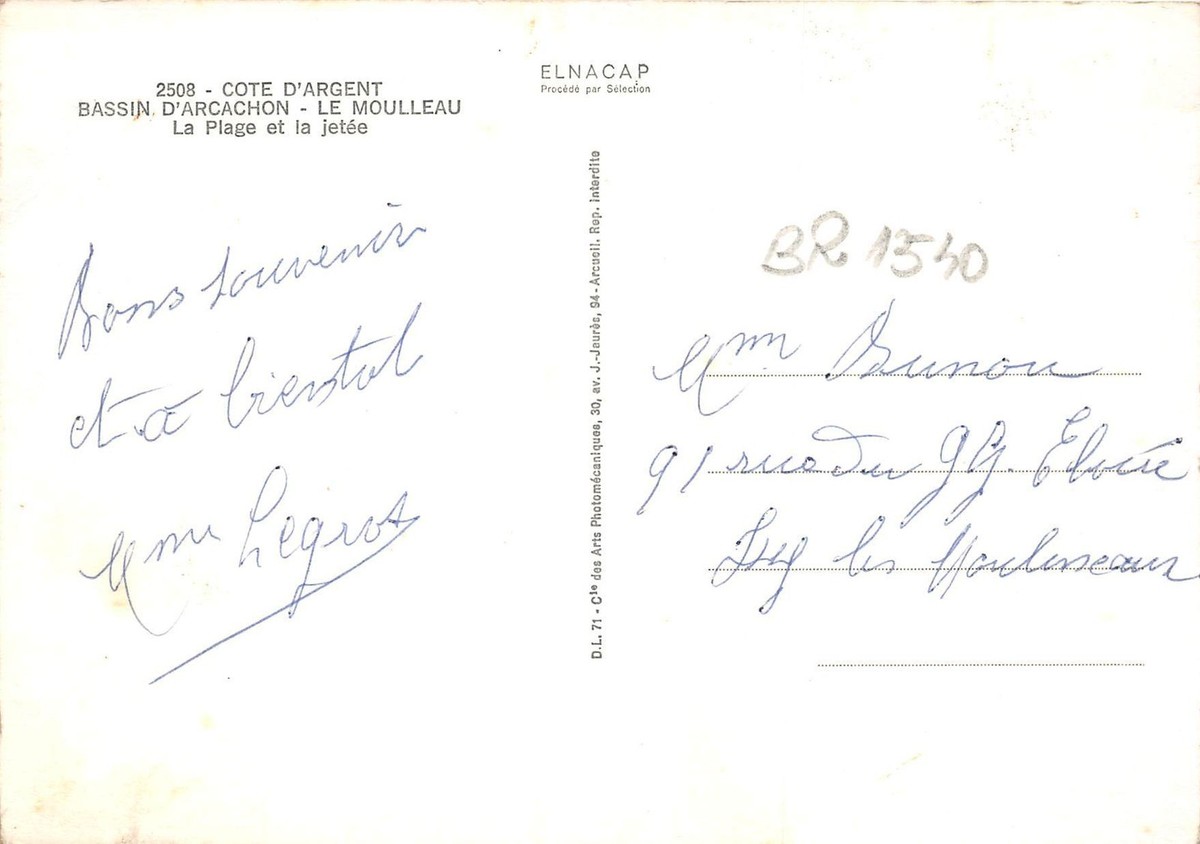 2508 - COTE D'ARGENT
BASSIN D'ARCACHON - LE MOULLEAU
La Plage et la jetée
ELNACAP
Procédé par Sélection
Bons souvenir
et a bientot
Mme Legros
D.L. 71 - Cie des Arts Photomécaniques, 30, av. J.-Jaurès, 94 - Arcueil. Rep. Interdite
BR 1540
Mm
91 rue du
Issy les Moulineaux